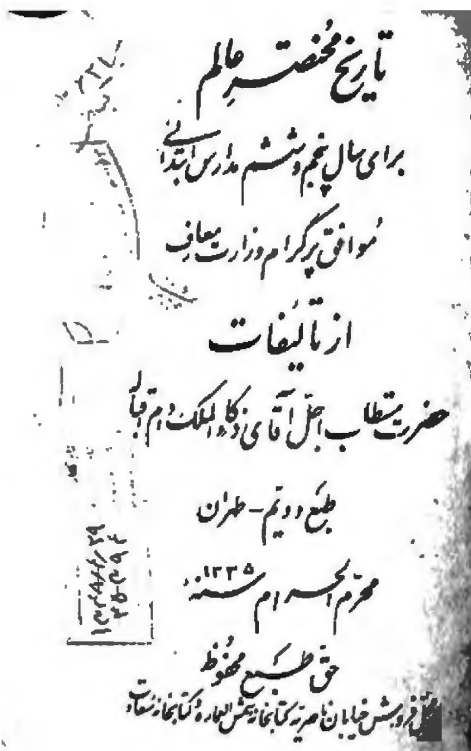 تاریخ مختصر عالم
برای سال پنجم و ششم مدارس ابتدائی
موافق پرگرام وزارت معارف
از تألیفات
حضرت مستطاب اجل آقای ذکاء الملک دام اقباله
طبع دویم - طهران
محرم الحرام سنه ۱۳۳۵
حق طبع محفوظ
محل فروش خیابان ناصریه کتابخانه شمس العماره و کتابخانه سعادت